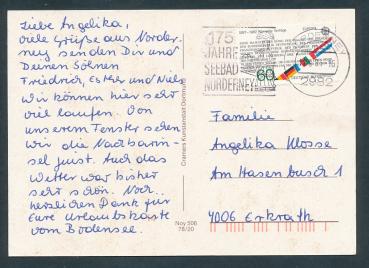 Liebe Angelika,
viele Grüße aus Norder-
ney senden Dir und
Deinen Söhnen
Friedrich, Esther und Niels
Wir können hier sehr
viel laufen. Von
unserem Fenster sehen
wir die Nachbarin-
sel Juist. Auch das
Wetter war bisher
sehr schön. Noch
herzlichen Dank für
Eure Urlaubskarte
vom Bodensee.
Cramers Kunstanstalt Dortmund
Noy 506
78/20
175
JAHRE
SEEBAD
NORDERNEY
60
2982
Familie
Angelika Klosse
Am Hasenbusch 1
4006 Erkrath